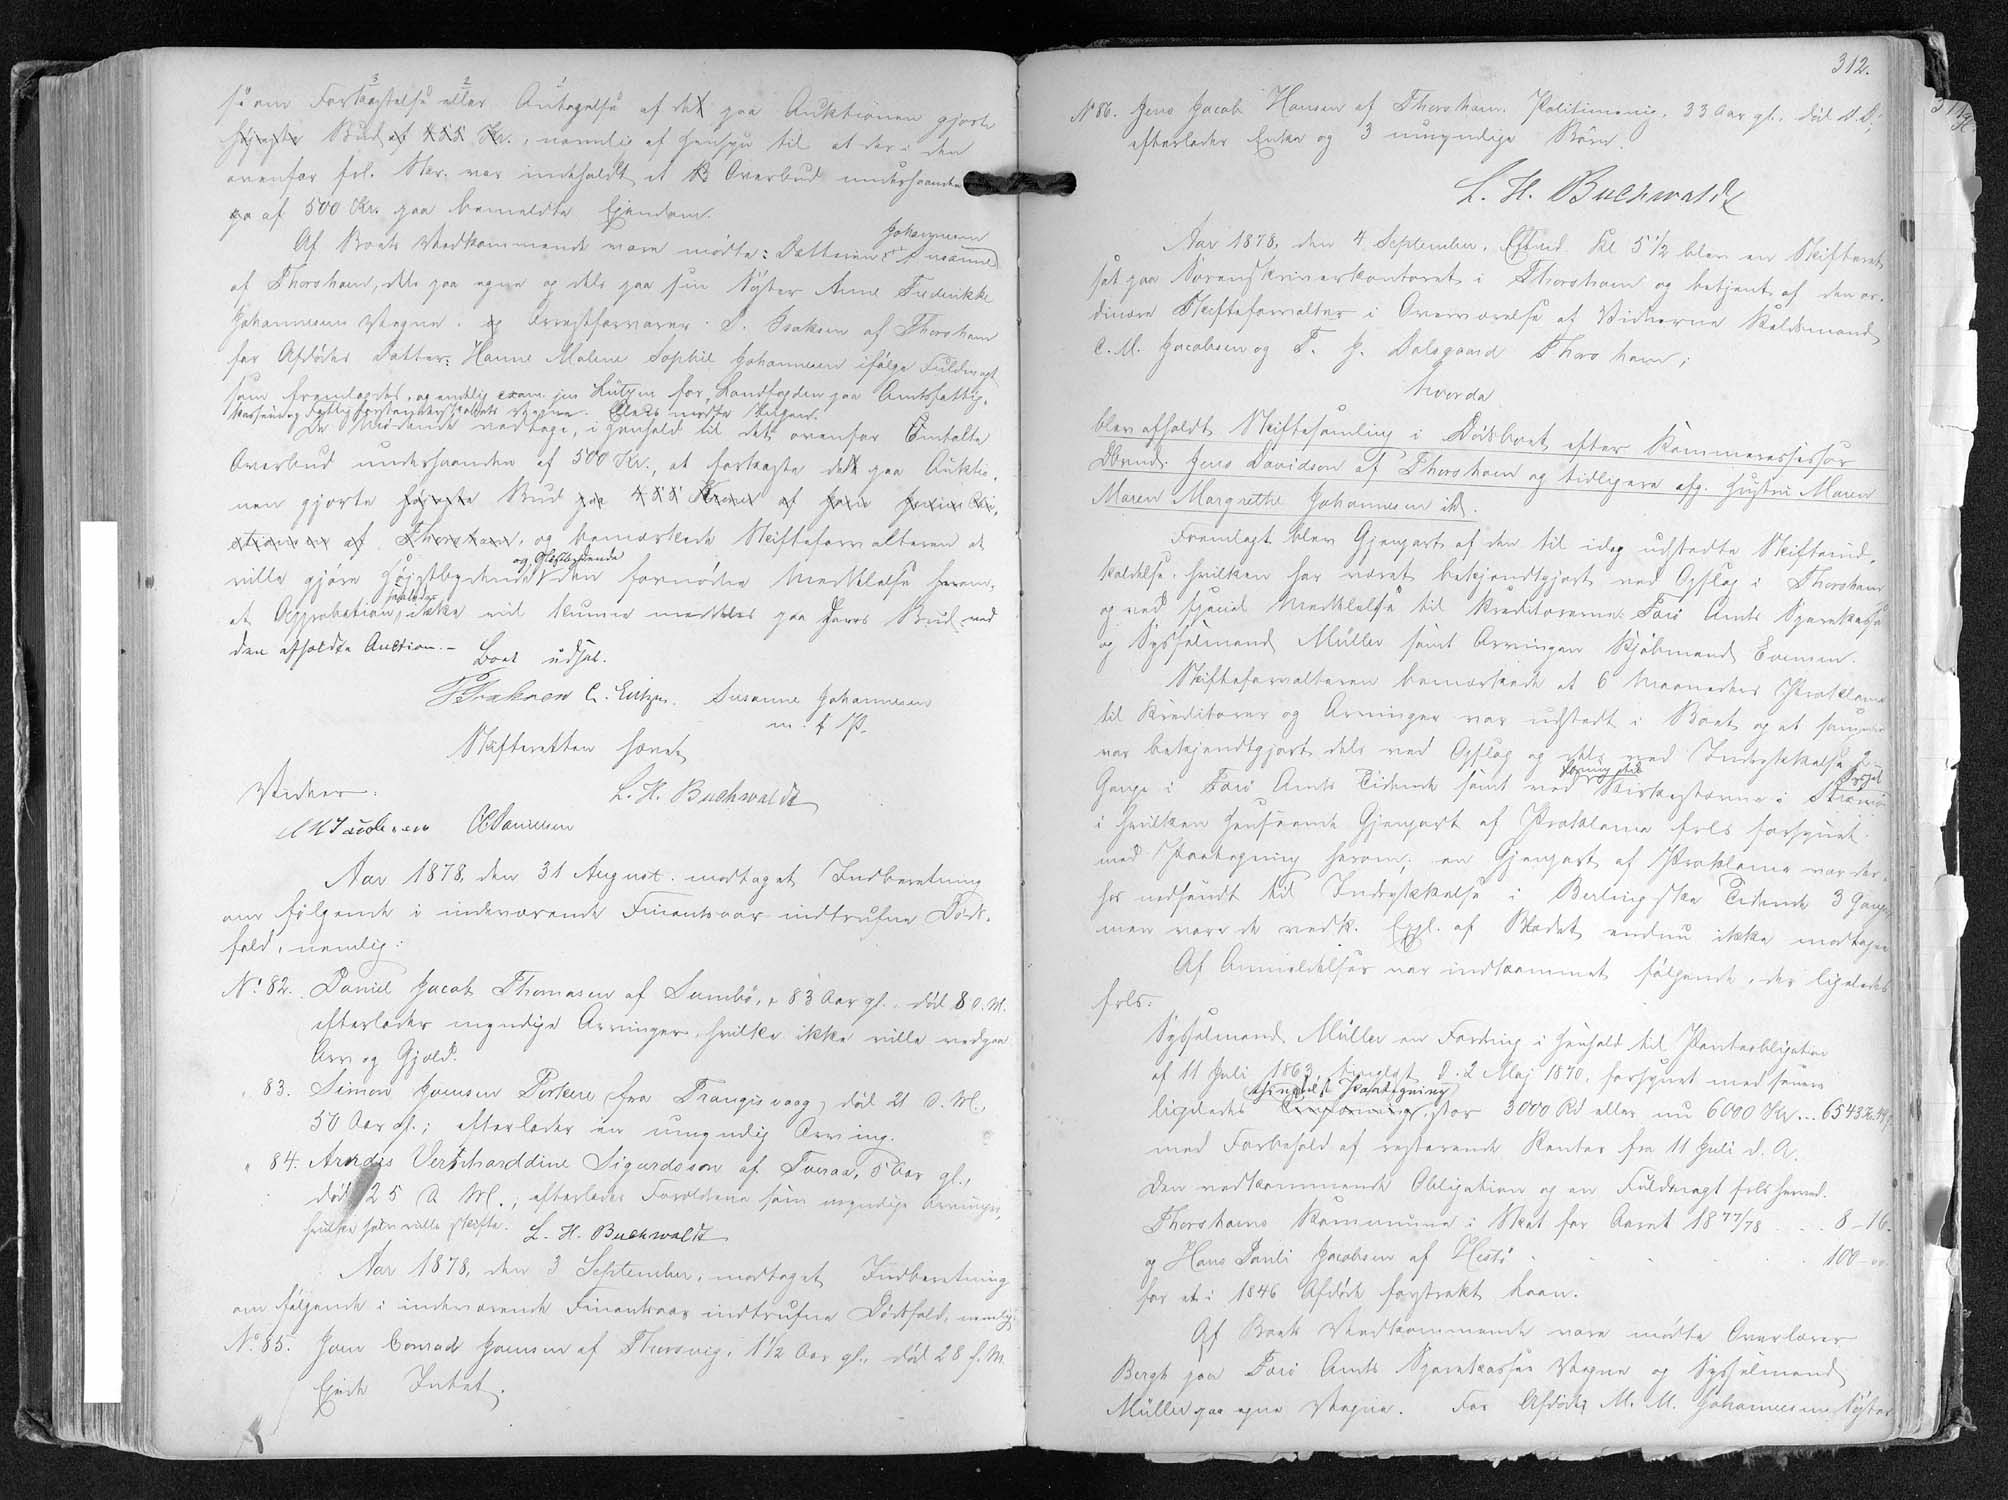 saa om Forkastelse eller Antagelse af det paa Auktionen gjorte
højeste Bud af Kr., nemlig af Hensyn til at der i den
ovenfor frl. Skr. var indeholdt et Overbud underhaanden
paa af 500 Kr. paa bemeldte Ejendom.
Af Boets Vedkommende vare mødte: Datteren Susanne Johannesen
af Thorshavn, dels paa egne og dels paa sin Søster Anne Frederikke
Johannesens Vegne. og Arrestforvarer P. Isaksen af Thorshavn
for Afdødes Datter: Hanne Malene Sophie Johannesen ifølge Fuldmagt
som fremlagdes, og endelig exam. jur. Lützen for Landfogden paa Amtsfattig-
kassens og Vegne.
De Mødende vedtoge, i Henhold til det ovenfor Omtalte
Overbud underhaanden af 500 Kr., at forkaste det paa Auktio-
nen gjorte højeste Bud paa Kroner af
af Thorshavn, og bemærkede Skifteforvalteren at
ville gjøre Højestbydende og Næstbydende den fornødne Meddelelse herom,
at Approbation saaledes ikke vil kunne meddeles paa deres Bud ved
den afholdte Auction. –
Boet udsat.
P Isaksen C. Lützen. Susanne Johannesen
m. f. P.
Skifteretten hævet
L. H. Buchwaldt
Vidner:
C M Jacobsen Danielsen
Aar 1878, den 31 August. modtaget Indberetning
om følgende i indeværende Finantsaar indtrufne Døds-
fald, nemlig:
No. 82. Daniel Jacob Thomasen af Sumbø, 83 Aar gl., død 8 d. M.
efterlader myndige Arvinger, hvilke ikke ville vedgaa
Arv og Gjæld.
" 83. Simon Joensen Porkere fra Trangisvaag, død 21 d. M.,
50 Aar gl.; efterlader en umyndig Arving.
" 84. Arndis Vernharddine Sigurdsson af Tveraa, 5 Aar gl.,
død 25 d. M., efterlader Forældrene som myndige Arvinger,
hvilke selv ville skifte. L. H. Buchwaldt
Aar 1878, den 3 September, modtaget Indberetning
om følgende i indeværende Finantsaar indtrufne Dødsfald, nemlig:
No. 85. Joen Conrad Joensen af Thorsvig, 1½ Aar gl., død 28 f. M.
Ejede Intet.
312.
No 86. Jens Jacob Hansen af Thorshavn. Politimenig, 33 Aar gl., død d. D.;
efterlader Enke og 3 umyndige Børn.
L. H. Buchwaldt
Aar 1878, den 4 September, Eftmd. Kl 5½ blev en Skifteret
sat paa Sorenskriverkontoret i Thorshavn og betjent af den or-
dinære Skifteforvalter i Overværelse af Vidnerne Kaldsmand
C. M. Jacobsen og T. J. Dalsgaard Thorshavn;
hvorda
blev afholdt Skiftesamling i Dødsboet efter Kammerassessor
Dbrmd. Jens Davidson af Thorshavn og tidligere afg. Hustru Maren
Maren Margrethe Johannesen ibd.
Fremlagt blev Gjenpart af den til idag udstedte Skifteind-
kaldelse, hvilken har været bekjendtgjort ved Opslag i Thorshavn
og ved speciel Meddelelse til Kreditorerne: Færø Amts Sparekasse
og Sysselmand Müller samt Arvingen Kjøbmand Evensen.
Skifteforvalteren bemærkede at 6 Maaneders Proklama
til Kreditorer og Arvinger var udstedt i Boet og at samme
var bekjendtgjort dels ved Opslag og dels ved Indrykkelse 2
Gange i Færø Amts Tidende samt ved Læsning ved Kirkestævne i Strømø
i hvilken Henseende Gjenpart af Proklama frls forsynet
med Paategning herom; en Gjenpart af Proklama var der-
hos nedsendt til Indrykkelse i Berlingske Tidende 3 Gange
men vare de vedk. Expl. af Bladet endnu ikke modtagne
Af Anmeldelser var indkommet følgende, der ligeledes
frls:
Sysselmand Müller en Fordring i Henhold til Panteobligation
af 11 Juli 1863, tinglyst d. 2 Maj 1870, forsynet med senere
ligeledes Paategning, stor 3000 Rd eller nu 6000 Kr ... 6543 Kr.
med Forbehold af resterende Renter fra 11 Juli d. A.
Den vedkommende Obligation og en Fuldmagt frls herved.
Thorshavns Kommune i Skat for Aaret 1877/78 . . . 8–16.
og Hans Pauli Jacobsen af Hestø . . . . . 100–00
for et i 1846 Afdøde forstrakt Laan.
Af Boets Vedkommende vare mødte Overlærer
Bergh paa Færø Amts Sparekasses Vegne og Sysselmand
Müller paa egne Vegne. For Afdøde M. M. Johannesens Søster